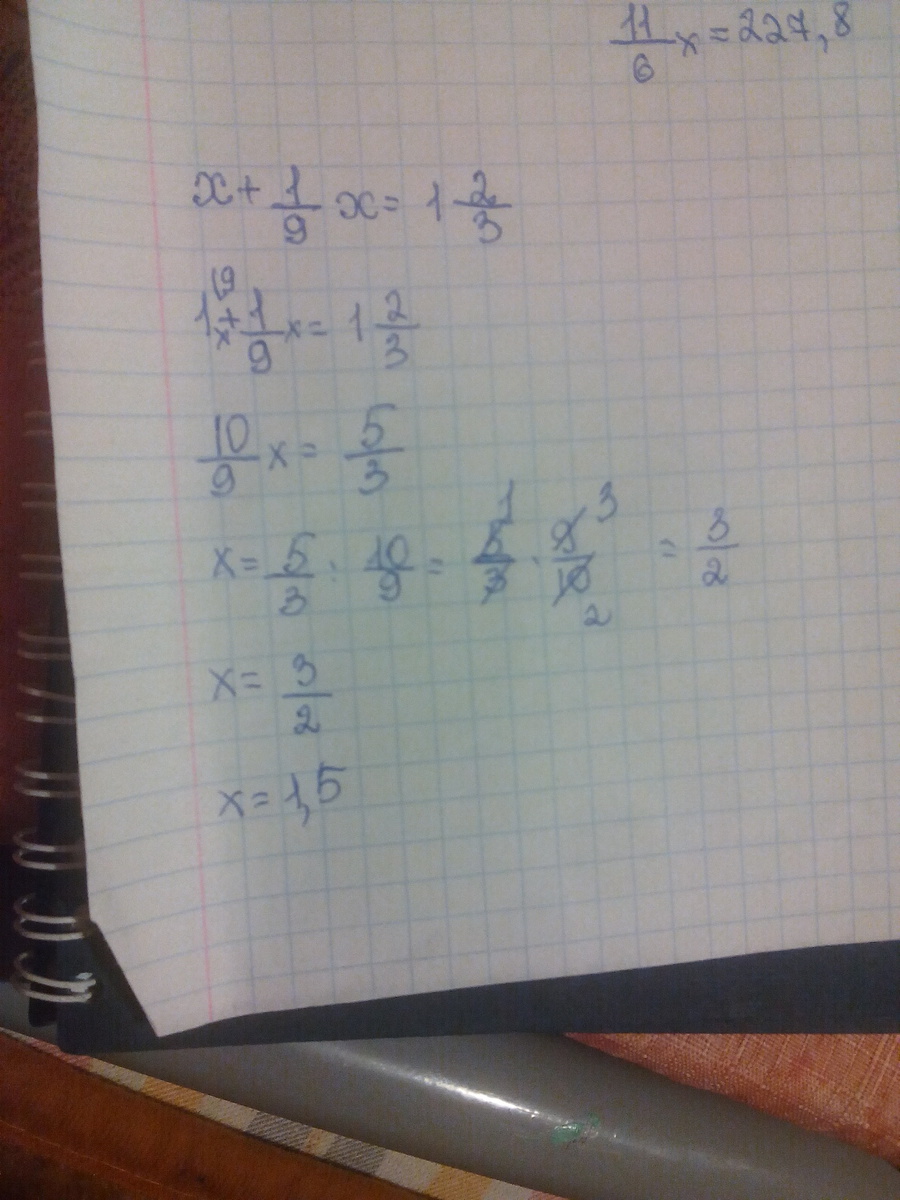 11/6 x = 227,8
x + 1/9 x = 1 2/3
1(9 x + 1/9 x = 1 2/3
10/9 x = 5/3
x = 5/3 : 10/9 = 5/3 1 · 9/10 3 2 = 3/2
x = 3/2
x = 1,5